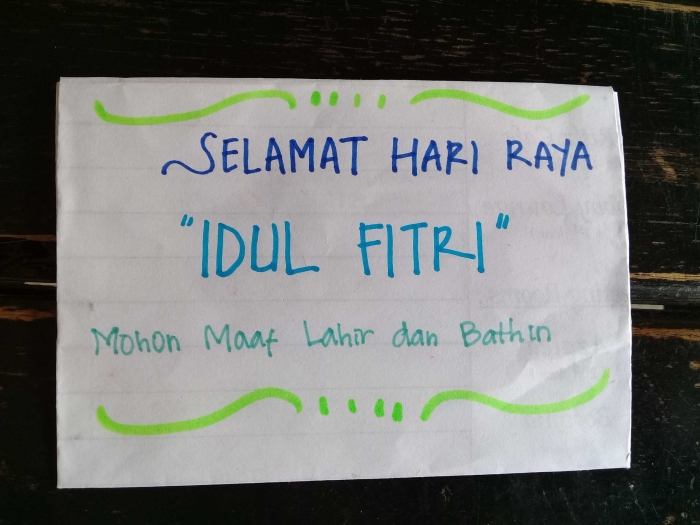 SELAMAT HARI RAYA
"IDUL FITRI"
Mohon Maaf Lahir dan Bathin